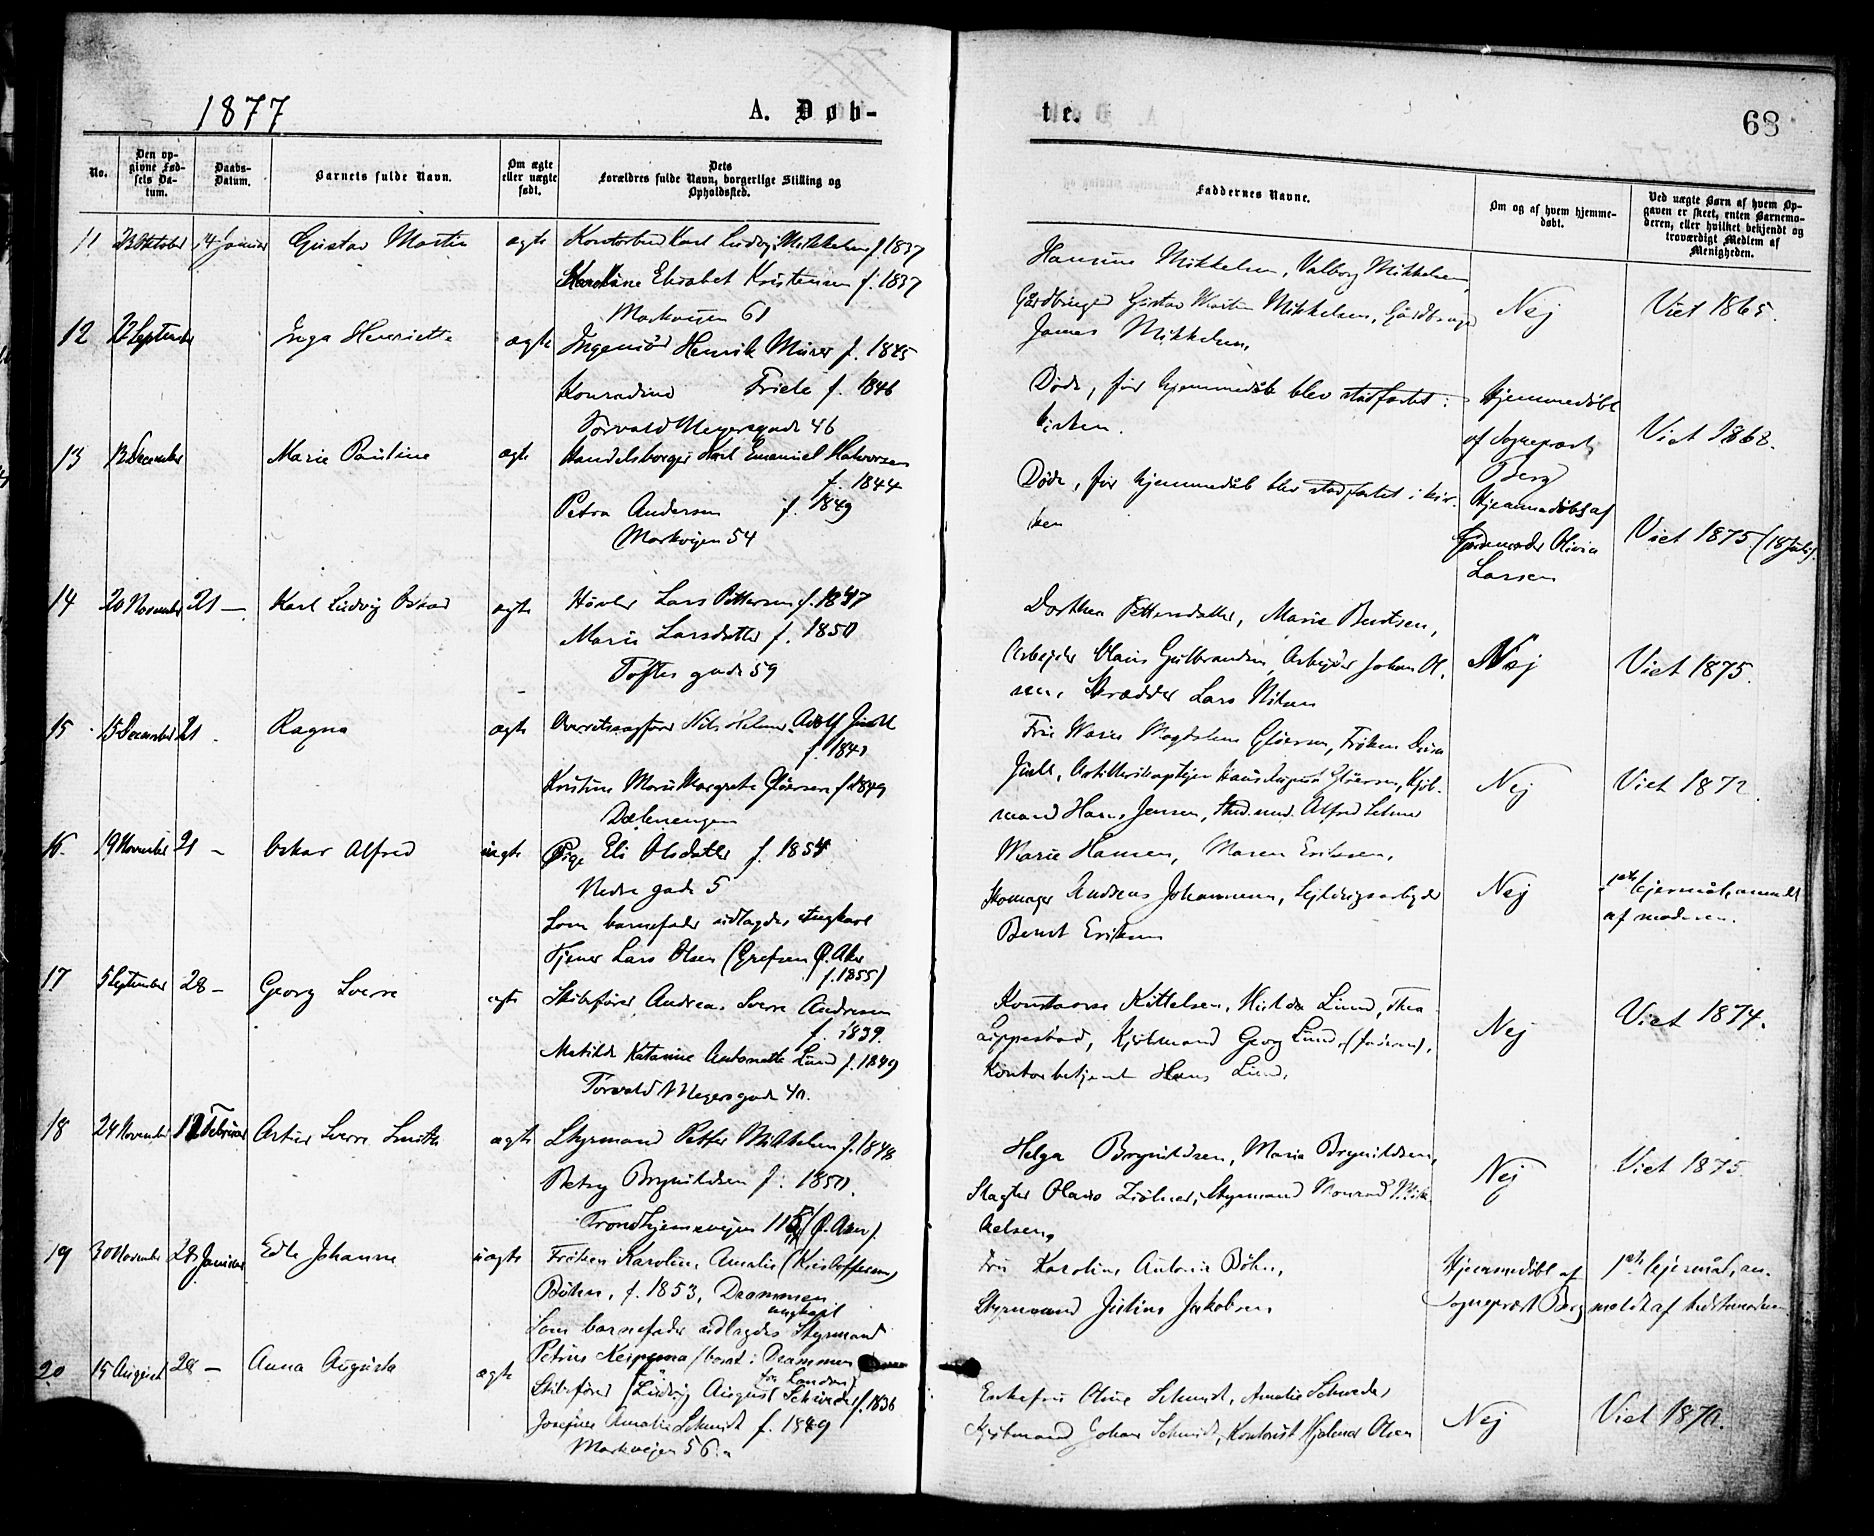 1877
A. Døb-
te.
68
No.
Den op-
givne Fød-
sels Da-
tum.
Daabs-
Datum.
Barnets fulde Navn.
Om ægte
eller uægte
født.
Dets
Forældres fulde Navn, borgerlige Stilling og
Opholdssted.
Faddernes Navne.
Om og af hvem hjemme-
døbt.
Ved uægte Børn af hvem Op-
gaven er skeet, enten Barnemo-
deren, eller hvilket bekjendt og
troværdigt Medlem af
Menigheden.
11 23 Oktober 14 Januar Gustav Martin ægte Kontorbud Karl Ludvig Mikkelsen f. 1837
Karoline Elisabet Kristensen f. 1837
Markvejen 61
Hansine Mikkelsen, Valborg Mikkelsen,
Gårdbruger Gustav Martin Mikkelsen, Gårdbruger
James Mikkelsen,
Nej
Viet 1865.
12 22 September Inga Henriette ægte Ingeniør Henrik Müner f. 1845
Konradine Friele f. 1846
Torvald Meyersgade 46
Døde, før hjemmedåb blev stadfæstet i
kirken.
Hjemmedøbt
af Sognepræst
Berg
Viet 1868.
13 12 December Marie Pauline ægte Handelsborger Karl Emanuel Halvorsen
f. 1844
Petra Andersen f. 1849
Markvejen 54
Døde, før hjemmedåb blev stadfæstet i kir-
ken
Hjemmedøbt af
Gjordemoder Olivia
Larsen
Viet 1875 (18 Juli)
14 20 November 21 — Karl Ludvig Oskar ægte Høvler Lars Pettersen f. 1847
Marie Larsdatter f. 1850
Toftes gade 59
Dorthea Pettersdatter, Marie Berntsen,
Arbejder Hans Gulbrandsen, Arbejder Johan Ol-
sen, Skrædder Lars Nilsen
Nej
Viet 1875.
15 15 December 21 Ragna ægte Overretssagfører Nils Helmer Adolf Juell
f. 1841
Kristine Marie Margrete Gløersen f. 1849
Dælenengen
Fru Maria Magdalena Gløersen, Frøken
Juell, Artillerikaptejn Gløersen, Kjøb-
mand Hans Jensen, stud. med. Alfred
Nej
Viet 1872.
16. 19 November 21 — Oskar Alfred uægte Pige Eli Olsdatter f. 1854
Nedre gade 5
Som barnefader udlagdes Ungkarl
Tjener Lars Olsen (Grefsen Ø. Aker
f. 1855)
Marie Hansen, Maren Eriksen,
Skomager Andreas Johannesen, Sejldugsarbejder
Bernt Eriksen
Nej
1ste lejermål, anmeldt
af moderen.
17 5 September 28 — Georg Sverre ægte Skibsfører Andreas Sverre Andresen
f. 1839.
Matilde Katarine Antonette Lund f. 1849
Torvald Meyersgade 40.
Konstanse Kittelsen, Hilda Lund, Thea
Lippestad, Kjøbmand Georg Lund,
Kontorbetjent Hans Lund,
Nej
Viet 1874.
18 24 November 12 Februar Artur Sverre Smith ægte Styrmand Petter Mikkelsen f. 1848
Betsy Brynildsen f. 1850.
Trondhjemsvejen 115 (Ø. Aker)
Helga Brynildsen, Maria Brynildsen,
Slagter Olaus Zølner, Styrmand Konrad Mik-
kelsen,
Nej
Viet 1875
19 30 November 28 Januar Edle Johanne uægte Frøken Karoline Amalie (Kristoffersen)
Bøhn, f. 1853, Drammen
Som barnefader udlagdes ungkarl Styrmand
Petrus bosat i Drammen
Fru Karoline Antonie Bøhn,
Styrmand Julius Jakobsen
Hjemmedøbt af
Sognepræst Berg
1ste lejermål, an-
meldt af
20 15 August 28 — Anna Augusta ægte Skibsfører Ludvig August f. 1836
Josefine Amalie Schmidt f. 1849
Markvejen 56.
Enkefru Oline Schmidt, Amalie Schrøder,
Kjøbmand Johan Schmidt, Kontorist Hjalmar Olsen
Nej
Viet 1870.